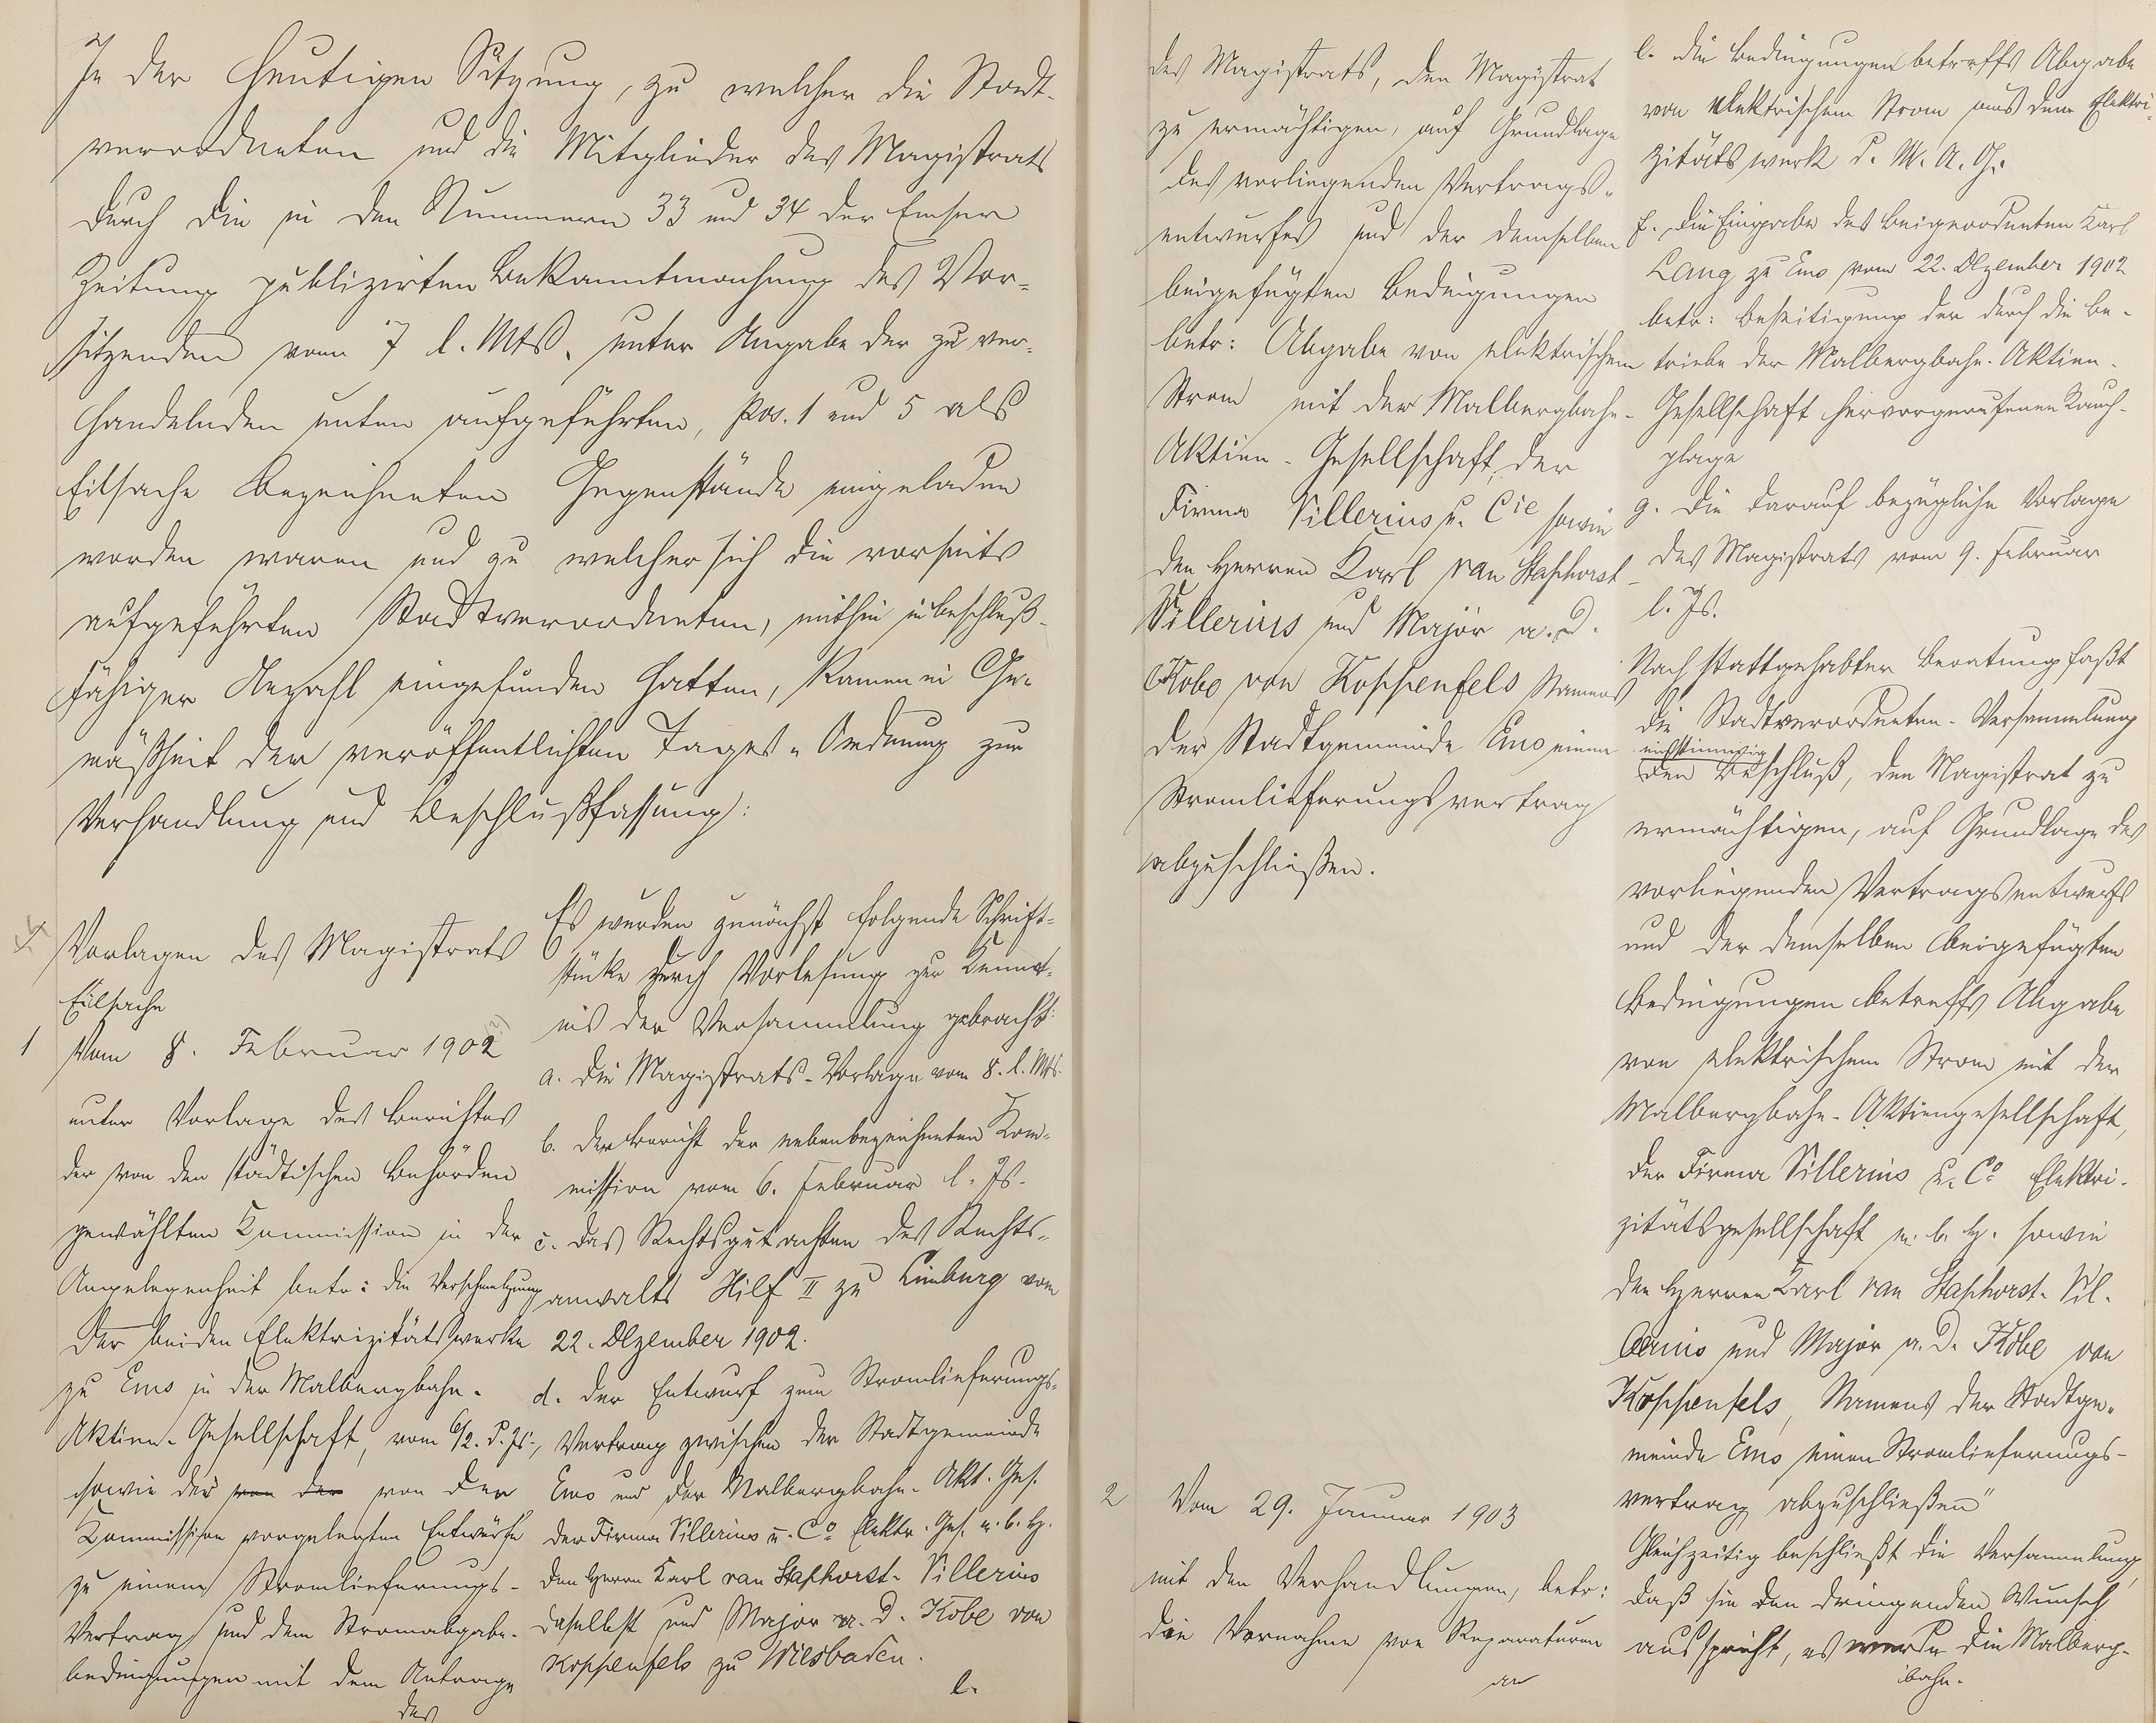 In der heutigen Sitzung, zu welcher die Stadt-
verordneten und die Mitglieder des Magistrats
durch die in den Nummern 33 und 34 der Emser
Zeitung publizirten Bekanntmachung des Vor-
sitzenden vom 7 l. Mts. unter Angabe der zu ver-
handelnden unten aufgeführten, Pos. 1 und 5 als
Eilsache bezeichneten Gegenstände eingeladen
worden waren und zu welcher sich die vorseits
aufgeführten Stadtverordneten, mithin in beschluß-
fähiger Anzahl eingefunden hatten, kamen in Ge-
mäßheit der veröffentlichten Tages-Ordnung zur
Verhandlung und Beschlußfassung:
Vorlagen des Magistrats
Eilsache
1 Vom 8. Februar 1902
unter Vorlage des Berichtes
der von den städtischen Behörden
gewählten Commission in der
Angelegenheit betr: die Verschmelzung
der beiden Elektrizitätswerke
zu Ems in der Malbergbahn-
Aktien-Gesellschaft, vom 6/2. d. Js.,
sowie des von der von der
Commission vorgelegten Entwurfs
zu einem Stromlieferungs-
Vertrag und den Stromabgabe-
bedingungen mit dem Antrage
des
Es wurden zunächst folgende Schrift-
stücke durch Vorlesung zur Kennt-
nis der Versammlung gebracht:
a. die Magistrats-Vorlage vom 8. l. Mts.
b. der Bericht der nebenbezeichneten Kom-
mission vom 6. Februar l. Js.
c. das Rechtsgutachten des Rechts-
anwalts Hilf II zu Limburg vom
22. Dezember 1902.
d. der Entwurf zum Stromlieferungs-
Vertrag zwischen der Stadtgemeinde
Ems und der Malbergbahn-Akt. Ges.
der Firma Villerius u. Co Elektr. Ges. m. b. H.
den Herrn Karl van Staphorst-Villerius
daselbst und Major a. D. Kobe von
Koppenfels zu Wiesbaden.
e.
des Magistrats, den Magistrat
zu ermächtigen, auf Grundlage
des vorliegenden Vertrags-
entwurfes und der demselben
beigefügten Bedingungen
betr: Abgabe von elektrischem
Strom mit der Malbergbahn-
Aktien-Gesellschaft, der
Firma Villerius u. Cie sowie
den Herren Karl van Staphorst-
Villerius und Major a. D.
Kobe von Koppenfels Namens
der Stadtgemeinde Ems einen
Stromlieferungsvertrag
abzuschließen.
2 Vom 29. Januar 1903
mit den Verhandlungen, betr:
die Vornahme von Reparaturen
an
e. die Bedingungen betreffs Abgabe
von elektrischem Strom aus dem Elektri-
zitätswerk d. M. A. G.
f. die Eingabe des Beigeordneten Karl
Lang zu Ems vom 22. Dezember 1902
betr: Beseitigung der durch die Be-
triebe der Malbergbahn-Aktien-
Gesellschaft hervorgerufenen Rauch-
plage
g. die darauf bezügliche Vorlage
des Magistrats vom 9. Februar
l. Js.
Nach stattgehabter Beratung faßt
die Stadtverordneten-Versammlung
einstimmig
den Beschluß, den Magistrat zu
ermächtigen, auf Grundlage des
vorliegenden Vertragsentwurfs
und der demselben beigefügten
Bedingungen betreffs Abgabe
von elektrischem Strom mit der
Malbergbahn-Aktiengesellschaft,
der Firma Villerius u. Co Elektri-
zitätsgesellschaft m. b. H. sowie
den Herren Karl van Staphorst-Vil-
lerius und Major a. D. Kobe von
Koppenfels, Namens der Stadtge-
meinde Ems einen Stromlieferungs-
vertrag abzuschließen"
Gleichzeitig beschließt die Versammlung,
daß sie den dringenden Wunsch
ausspricht, es werde die Malberg-
bahn-